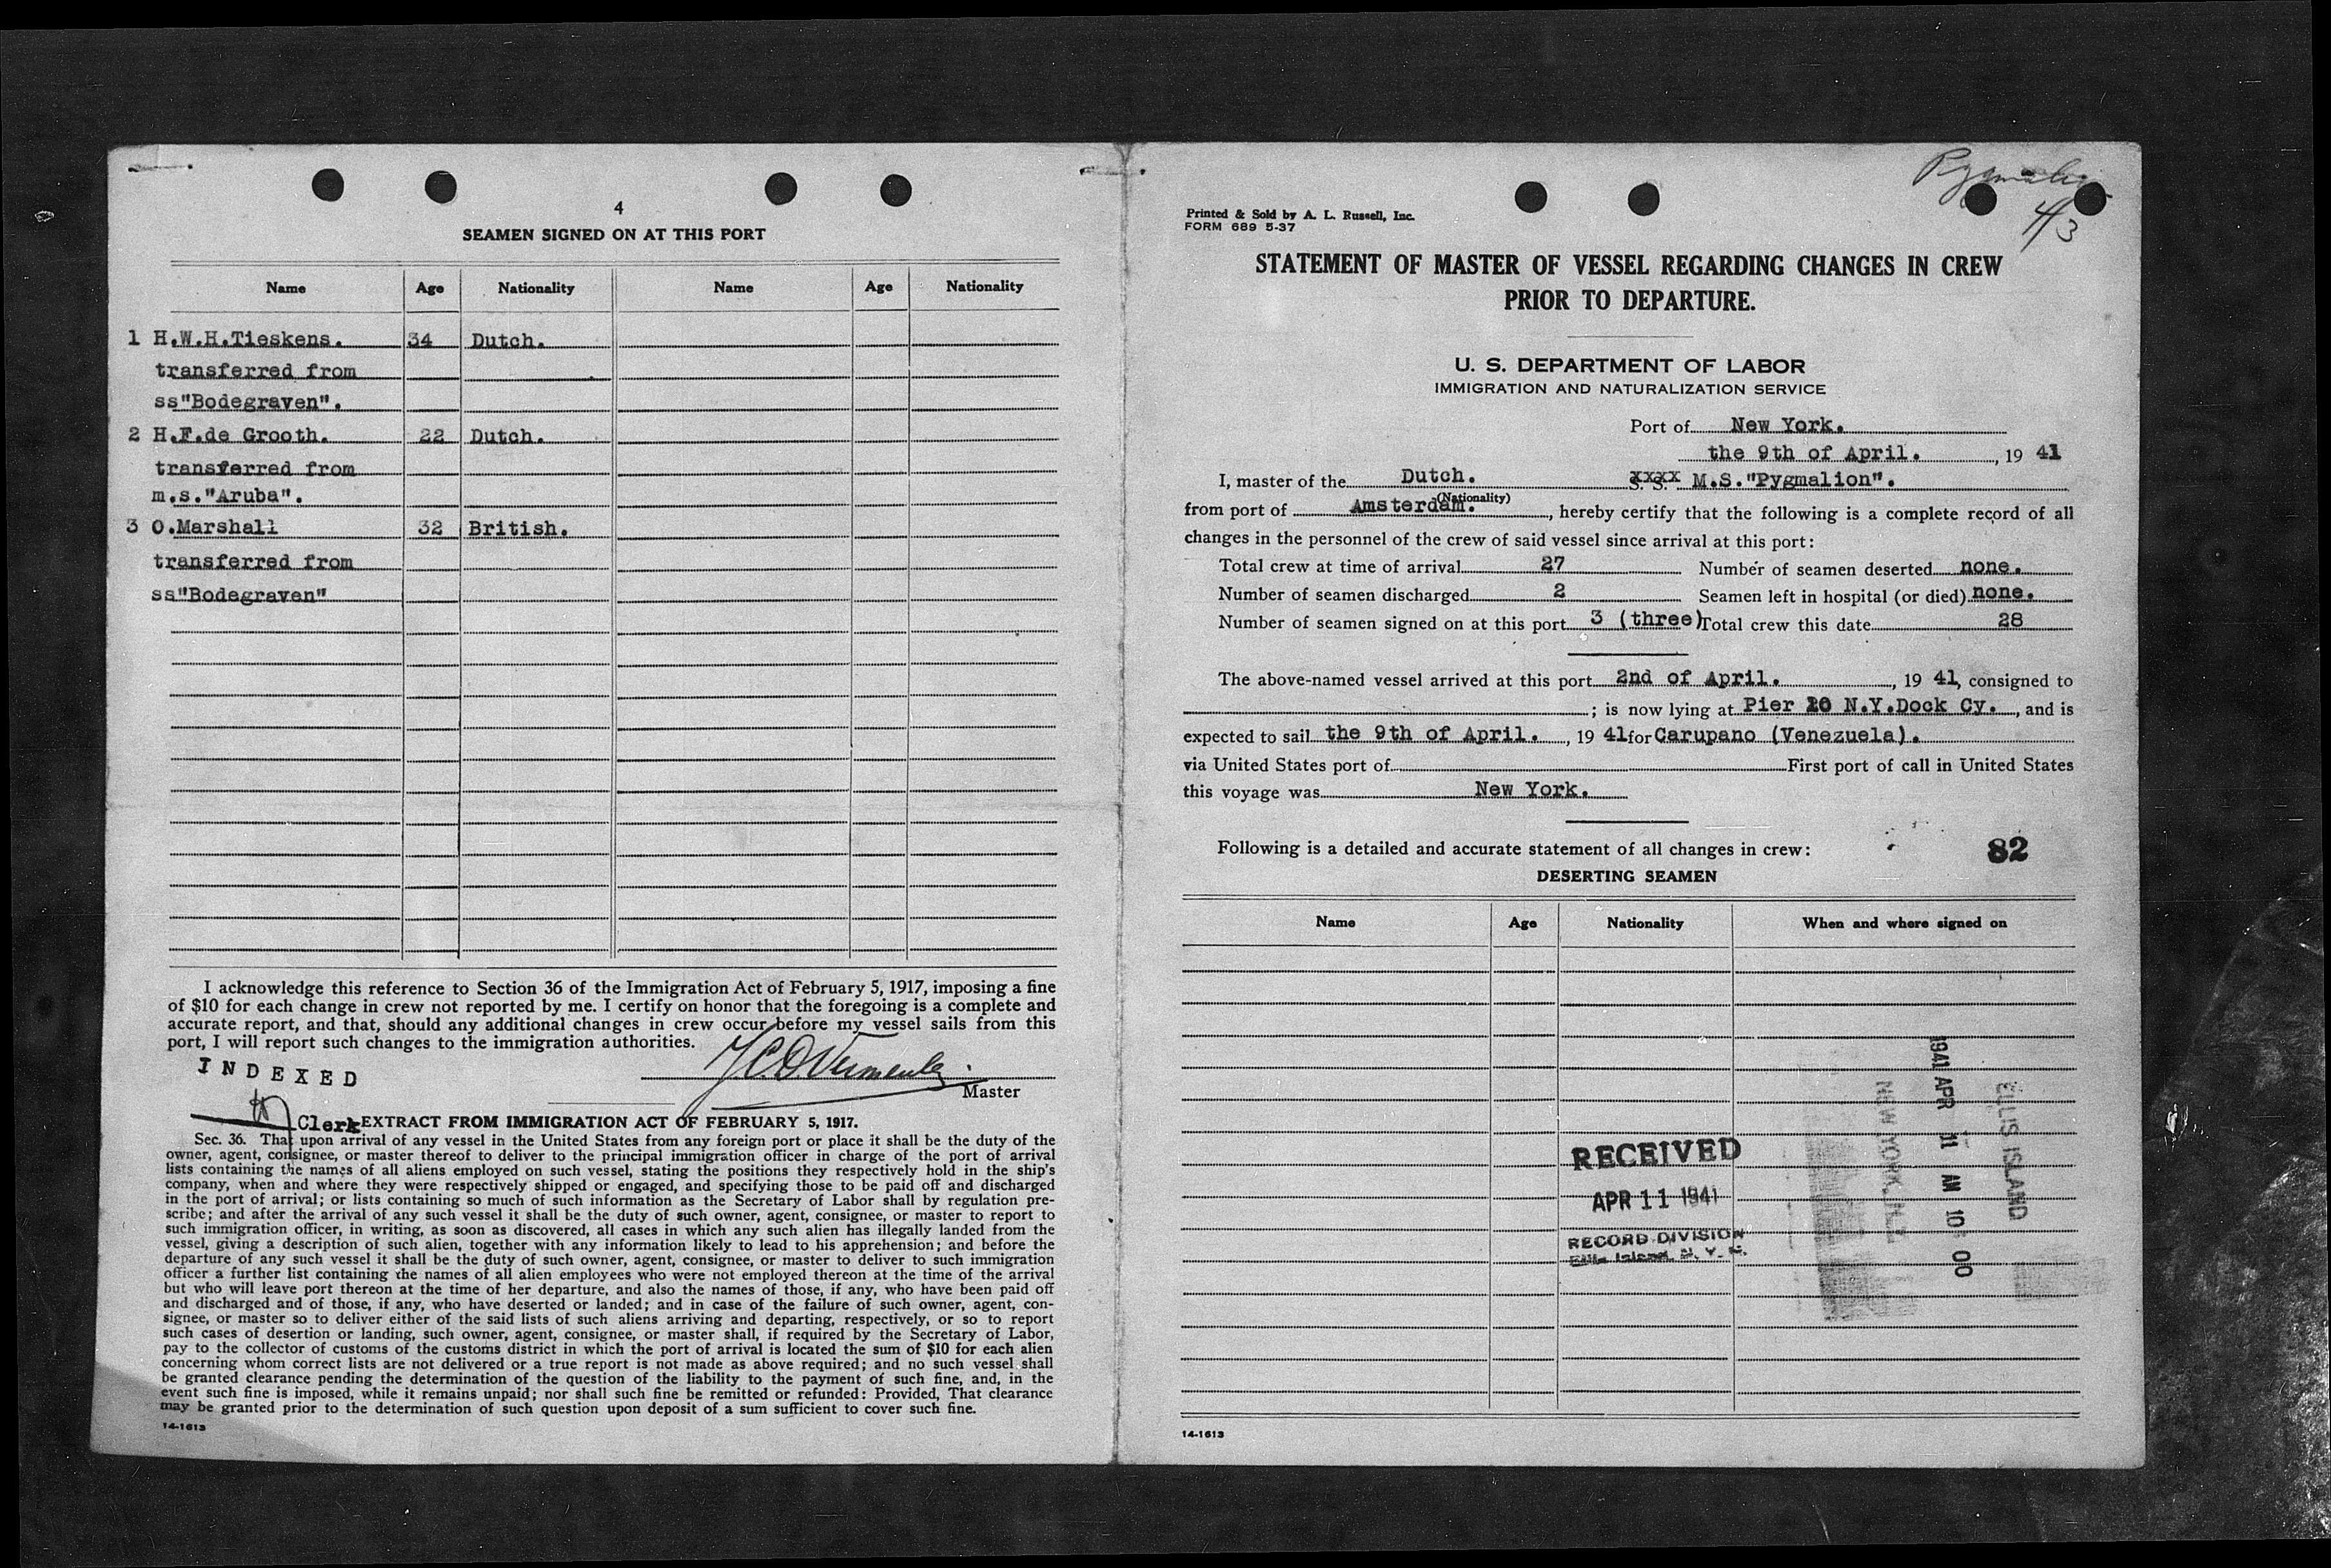 4
SEAMEN SIGNED ON AT THIS PORT
Name Age Nationality Name Age Nationality
1 H.W.H.Tieskens. 34 Dutch.
transferred from
ss"Bodegraven".
2 H.F.de Grooth. 22 Dutch.
transferred from
m.s."Aruba".
3 O.Marshall 32 British.
transferred from
ss"Bodegraven"
I acknowledge this reference to Section 36 of the Immigration Act of February 5, 1917, imposing a fine
of $10 for each change in crew not reported by me. I certify on honor that the foregoing is a complete and
accurate report, and that, should any additional changes in crew occur before my vessel sails from this
port, I will report such changes to the immigration authorities.
INDEXED
Master
Clerk
EXTRACT FROM IMMIGRATION ACT OF FEBRUARY 5, 1917.
Sec. 36. That upon arrival of any vessel in the United States from any foreign port or place it shall be the duty of the
owner, agent, consignee, or master thereof to deliver to the principal immigration officer in charge of the port of arrival
lists containing the names of all aliens employed on such vessel, stating the positions they respectively hold in the ship's
company, when and where they were respectively shipped or engaged, and specifying those to be paid off and discharged
in the port of arrival; or lists containing so much of such information as the Secretary of Labor shall by regulation pre-
scribe; and after the arrival of any such vessel it shall be the duty of such owner, agent, consignee, or master to report to
such immigration officer, in writing, as soon as discovered, all cases in which any such alien has illegally landed from the
vessel, giving a description of such alien, together with any information likely to lead to his apprehension; and before the
departure of any such vessel it shall be the duty of such owner, agent, consignee, or master to deliver to such immigration
officer a further list containing the names of all alien employees who were not employed thereon at the time of the arrival
but who will leave port thereon at the time of her departure, and also the names of those, if any, who have been paid off
and discharged and of those, if any, who have deserted or landed; and in case of the failure of such owner, agent, con-
signee, or master so to deliver either of the said lists of such aliens arriving and departing, respectively, or so to report
such cases of desertion or landing, such owner, agent, consignee, or master shall, if required by the Secretary of Labor,
pay to the collector of customs of the customs district in which the port of arrival is located the sum of $10 for each alien
concerning whom correct lists are not delivered or a true report is not made as above required; and no such vessel shall
be granted clearance pending the determination of the question of the liability to the payment of such fine, and, in the
event such fine is imposed, while it remains unpaid; nor shall such fine be remitted or refunded: Provided, That clearance
may be granted prior to the determination of such question upon deposit of a sum sufficient to cover such fine.
14-1613
4/3
Printed & Sold by A. L. Russell, Inc.
FORM 689 5-37
STATEMENT OF MASTER OF VESSEL REGARDING CHANGES IN CREW
PRIOR TO DEPARTURE.
U. S. DEPARTMENT OF LABOR
IMMIGRATION AND NATURALIZATION SERVICE
Port of New York.
the 9th of April. , 19 41
I, master of the Dutch. S. S. xxxx M.S."Pygmalion".
(Nationality)
from port of Amsterdam. , hereby certify that the following is a complete record of all
changes in the personnel of the crew of said vessel since arrival at this port:
Total crew at time of arrival 27 Number of seamen deserted none.
Number of seamen discharged 2 Seamen left in hospital (or died) none.
Number of seamen signed on at this port 3 (three) Total crew this date 28
The above-named vessel arrived at this port 2nd of April. , 19 41, consigned to
; is now lying at Pier 20 N.Y.Dock Cy. , and is
expected to sail the 9th of April. , 19 41 for Carupano (Venezuela).
via United States port of First port of call in United States
this voyage was New York.
Following is a detailed and accurate statement of all changes in crew:
82
DESERTING SEAMEN
Name Age Nationality When and where signed on
RECEIVED
APR 11 1941
RECORD DIVISION
Ellis Island, N. Y. H.
1941 APR 11 AM 10 00
ELLIS ISLAND
NEW YORK, N.Y.
14-1613